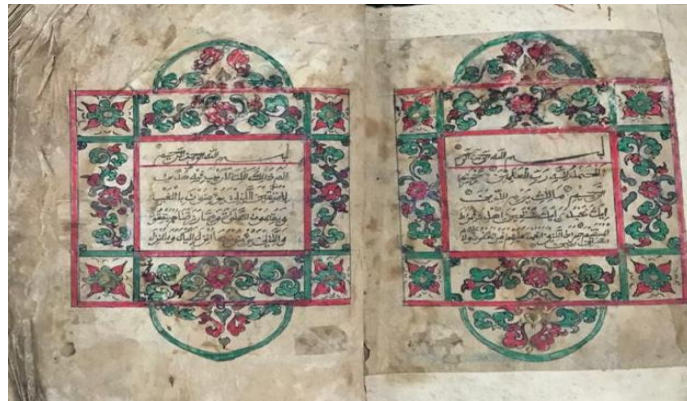 بسم الله الرحمن الرحيم
الحمد لله رب العلمين الرحمن
الرحيم ملك يوم الدين
إياك نعبد وإياك نستعين اهدنا الصراط
المستقيم صراط الذين أنعمت عليهم غير المغضوب عليهم ولا
الضالين
بسم الله الرحمن الرحيم
الم ذلك الكتاب لا ريب فيه هدى
للمتقين الذين يؤمنون بالغيب
ويقيمون الصلوة ومما رزقناهم ينفقون
والذين يؤمنون بما أنزل إليك وما أنزل